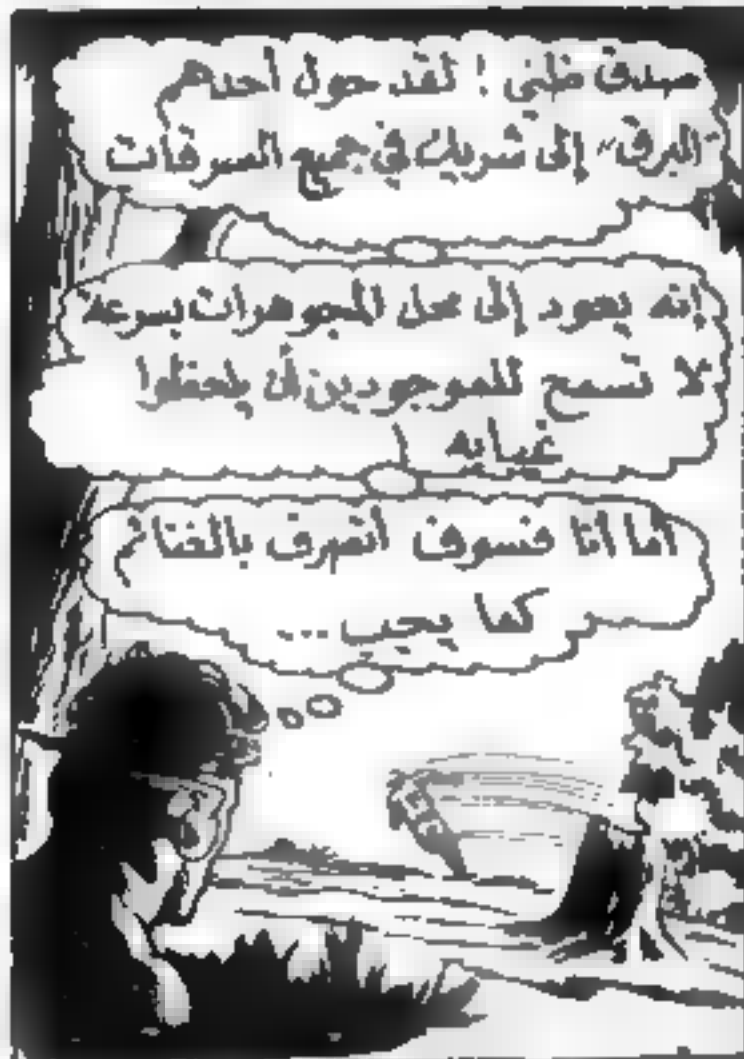 صدق ظني ! لقد حول أحدهم
"البرق" إلى شريك في جميع السرقات
إنه يعود إلى محل المجوهرات بسرعة
لا تسمح للموجودين أن يلحظوا
غيابه
أما أنا فسوف أتصرف بالغنائم
كما يجب ...